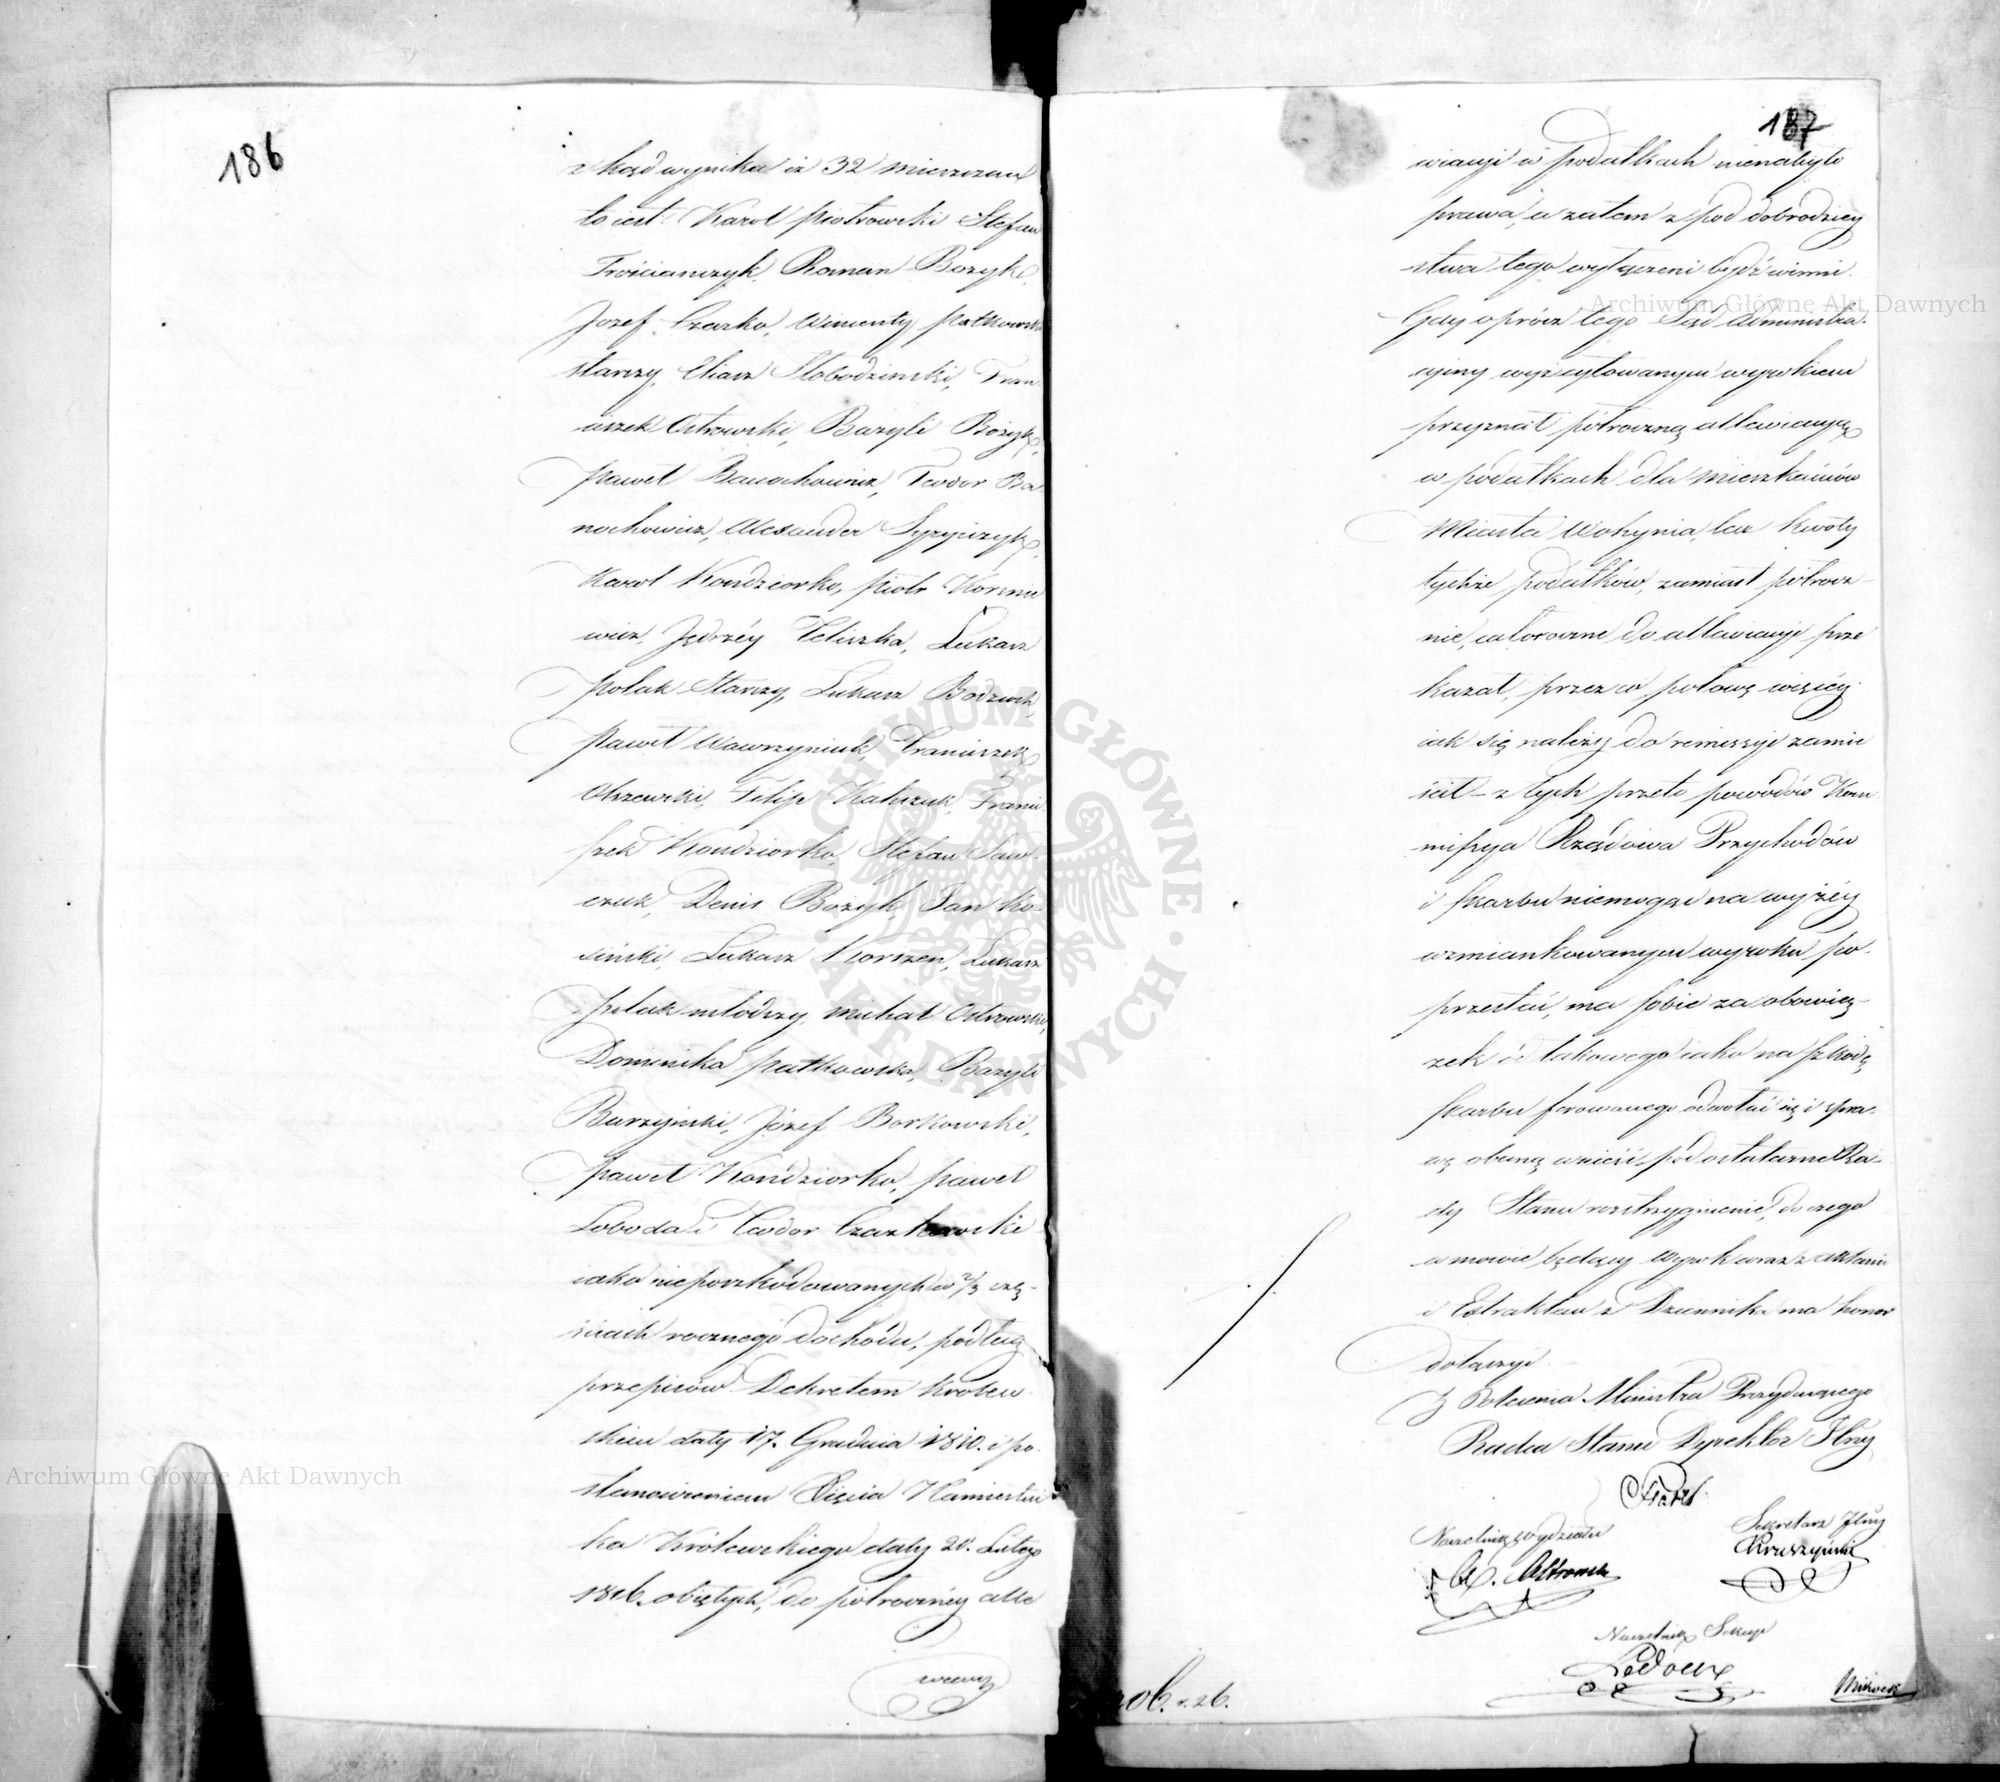 186
zkąd wynika iż 32 mieszczan
to iest: Karol Piotrowski Stefan
Trościanczyk, Roman Bozyk,
Jozef Czarko, Wincenty Patkowski
starszy, Eliasz Słobodzinski, Fran
ciszek Ostrowski, Bazyli Bożyk,
Paweł Banochowicz, Teodor Ba
nochowicz, Alexander
Karol Kondziorko, Piotr Kornie
wicz, Jędrzéy Teliszka, Łukasz
Polak Starszy, Łukasz
Paweł Wawrzyniuk, Franciszek
Olszewski, Filip Franci
szek Kondziorko, Stefan Saw
czuk, Denis Bożyk, Jan Ko-
siński, Łukasz Korszen, Łukasz
Polak młodszy, Michał Ostrowski,
Dominika Patkowska, Bazyli
Burzyński, Józef Borkowski,
Paweł Kondziorko, Paweł
Łoboda i Teodor Czarkowski
iako nieposzkodowanych w 2/3 czę-
ściach rocznego dochodu, podług
przepisów Dekretem Królew
skim daty 17. Grudnia 1810. i po-
stanowieniem Xięcia Namiestni
ka Królewskiego daty 20. Lutego
1816. obiętych, do półroczney alle
wiacyi
187
wiacyi w podatkach nienabyło
prawa, a zatem z pod dobrodziey
stwa tego wyłączeni bydź winni.
Gdy oprócz tego Sąd Administra-
cyiny wyż cytowanym wyrokiem
przyznał półroczną allewiacyą
w podatkach dla Mieszkańców
Miasta Wohynia, lecz kwoty
tychże podatków, zamiast półrocz-
nie, całoroczne do allewiacyi prze
kazał, przez co połowę więcéy
iak się należy do remissyi zamie
ścił – z tych przeto powodów Kom
missya Rządowa Przychodów
i Skarbu niemogąc na wyżéy
wzmiankowanym wyroku po-
przestać, ma sobie za obowią-
zek od takowego iako na szkodę
Skarbu ferowanego odwołać się i spra-
wę obecną wnieść pod ostateczne Ra-
dy Stanu rozstrzygnienie, do czego
w mowie będący Wyrok wraz z aktami
i Extraktem z Dziennika ma honor
dołączyć.
Z Polecenia Ministra Prezyduiącego
Radca Stanu Dyrektor Jlny
Naczelnik Wydziału
Sekretarz Jlny
Kruszyński
Naczelnik Sekcyi
Ledoux
26.
Archiwum Główne Akt Dawnych
Archiwum Główne Akt Dawnych
ARCHIWUM GŁÓWNE · AKT DAWNYCH ·